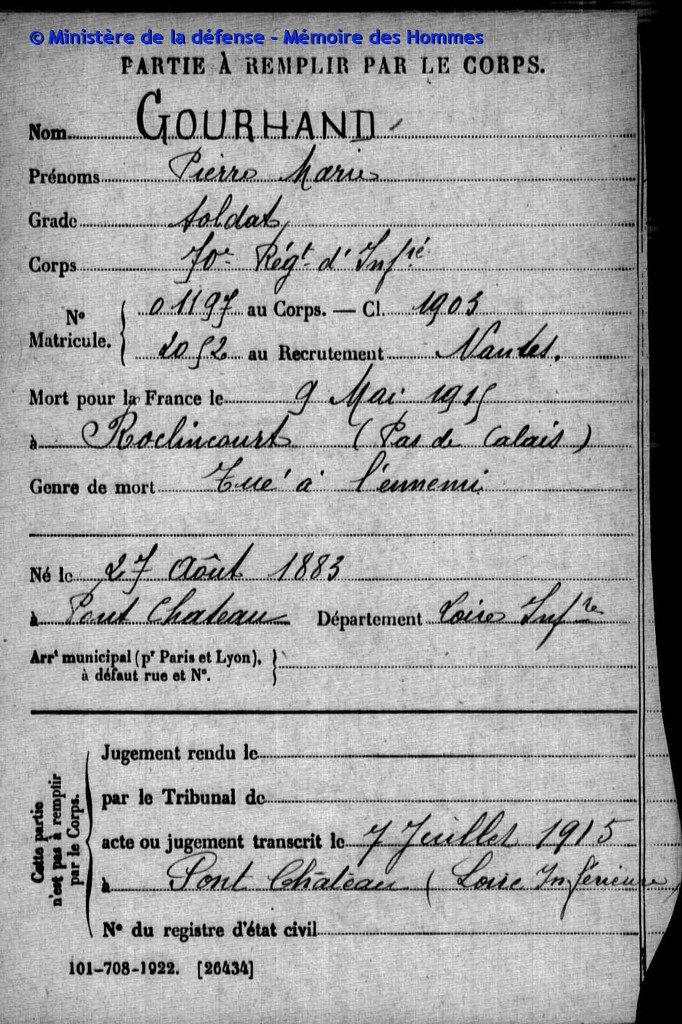 © Ministère de la défense - Mémoire des Hommes
PARTIE À REMPLIR PAR LE CORPS.
Nom GOURHAND
Prénoms Pierre Marie
Grade Soldat
Corps 70e Régt d'Infie
No Matricule. { 01197 au Corps. — Cl. 1903
2052 au Recrutement Nantes.
Mort pour la France le 9 Mai 1915
à Roclincourt (Pas de Calais)
Genre de mort Tué à l'ennemi
Né le 27 Août 1883
à Pont Chateau Département Loire Infre
Arrt municipal (pr Paris et Lyon), }
à défaut rue et No.
Cette partie n'est pas à remplir par le Corps.
Jugement rendu le
par le Tribunal de
acte ou jugement transcrit le 7 Juillet 1915
à Pont Château (Loire Inférieure)
No du registre d'état civil
101-708-1922. [26434]